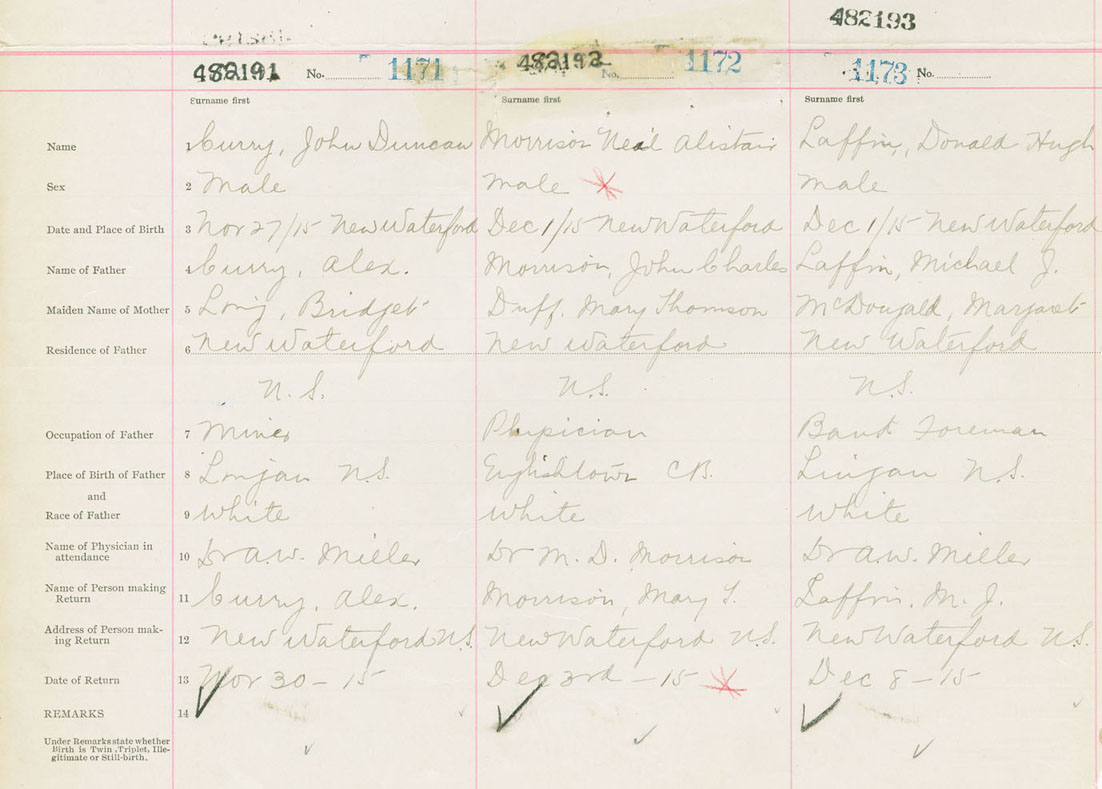 482193
482191 No. 1171 482192 No. 1172 1173 No.
Surname first Surname first Surname first
Name 1 Curry, John Duncan Morrison Neil Alistair Laffin, Donald Hugh
Sex 2 Male male male
Date and Place of Birth 3 Nov 27/15 New Waterford Dec 1/15 New Waterford Dec 1/15 New Waterford
Name of Father 4 Curry, Alex. Morrison, John Charles Laffin, Michael J.
Maiden Name of Mother 5 Long, Bridget Duff, Mary Thomson McDougald, Margaret
Residence of Father 6 New Waterford New Waterford New Waterford
N.S. N.S. N.S.
Occupation of Father 7 Miner Physician Foreman
Place of Birth of Father 8 Lingan N.S. Englishtown C.B. Lingan N.S.
and
Race of Father 9 White White White
Name of Physician in
attendance 10 Dr A.W. Miller Dr M. D. Morrison Dr A.W. Miller
Name of Person making
Return 11 Curry, Alex. Morrison, Mary T. Laffin, M. J.
Address of Person mak-
ing Return 12 New Waterford N.S. New Waterford N.S. New Waterford N.S.
Date of Return 13 Nov 30 - 15 Dec 3rd - 15 Dec 8 - 15
REMARKS 14
Under Remarks state whether
Birth is Twin, Triplet, Ille-
gitimate or Still-birth.